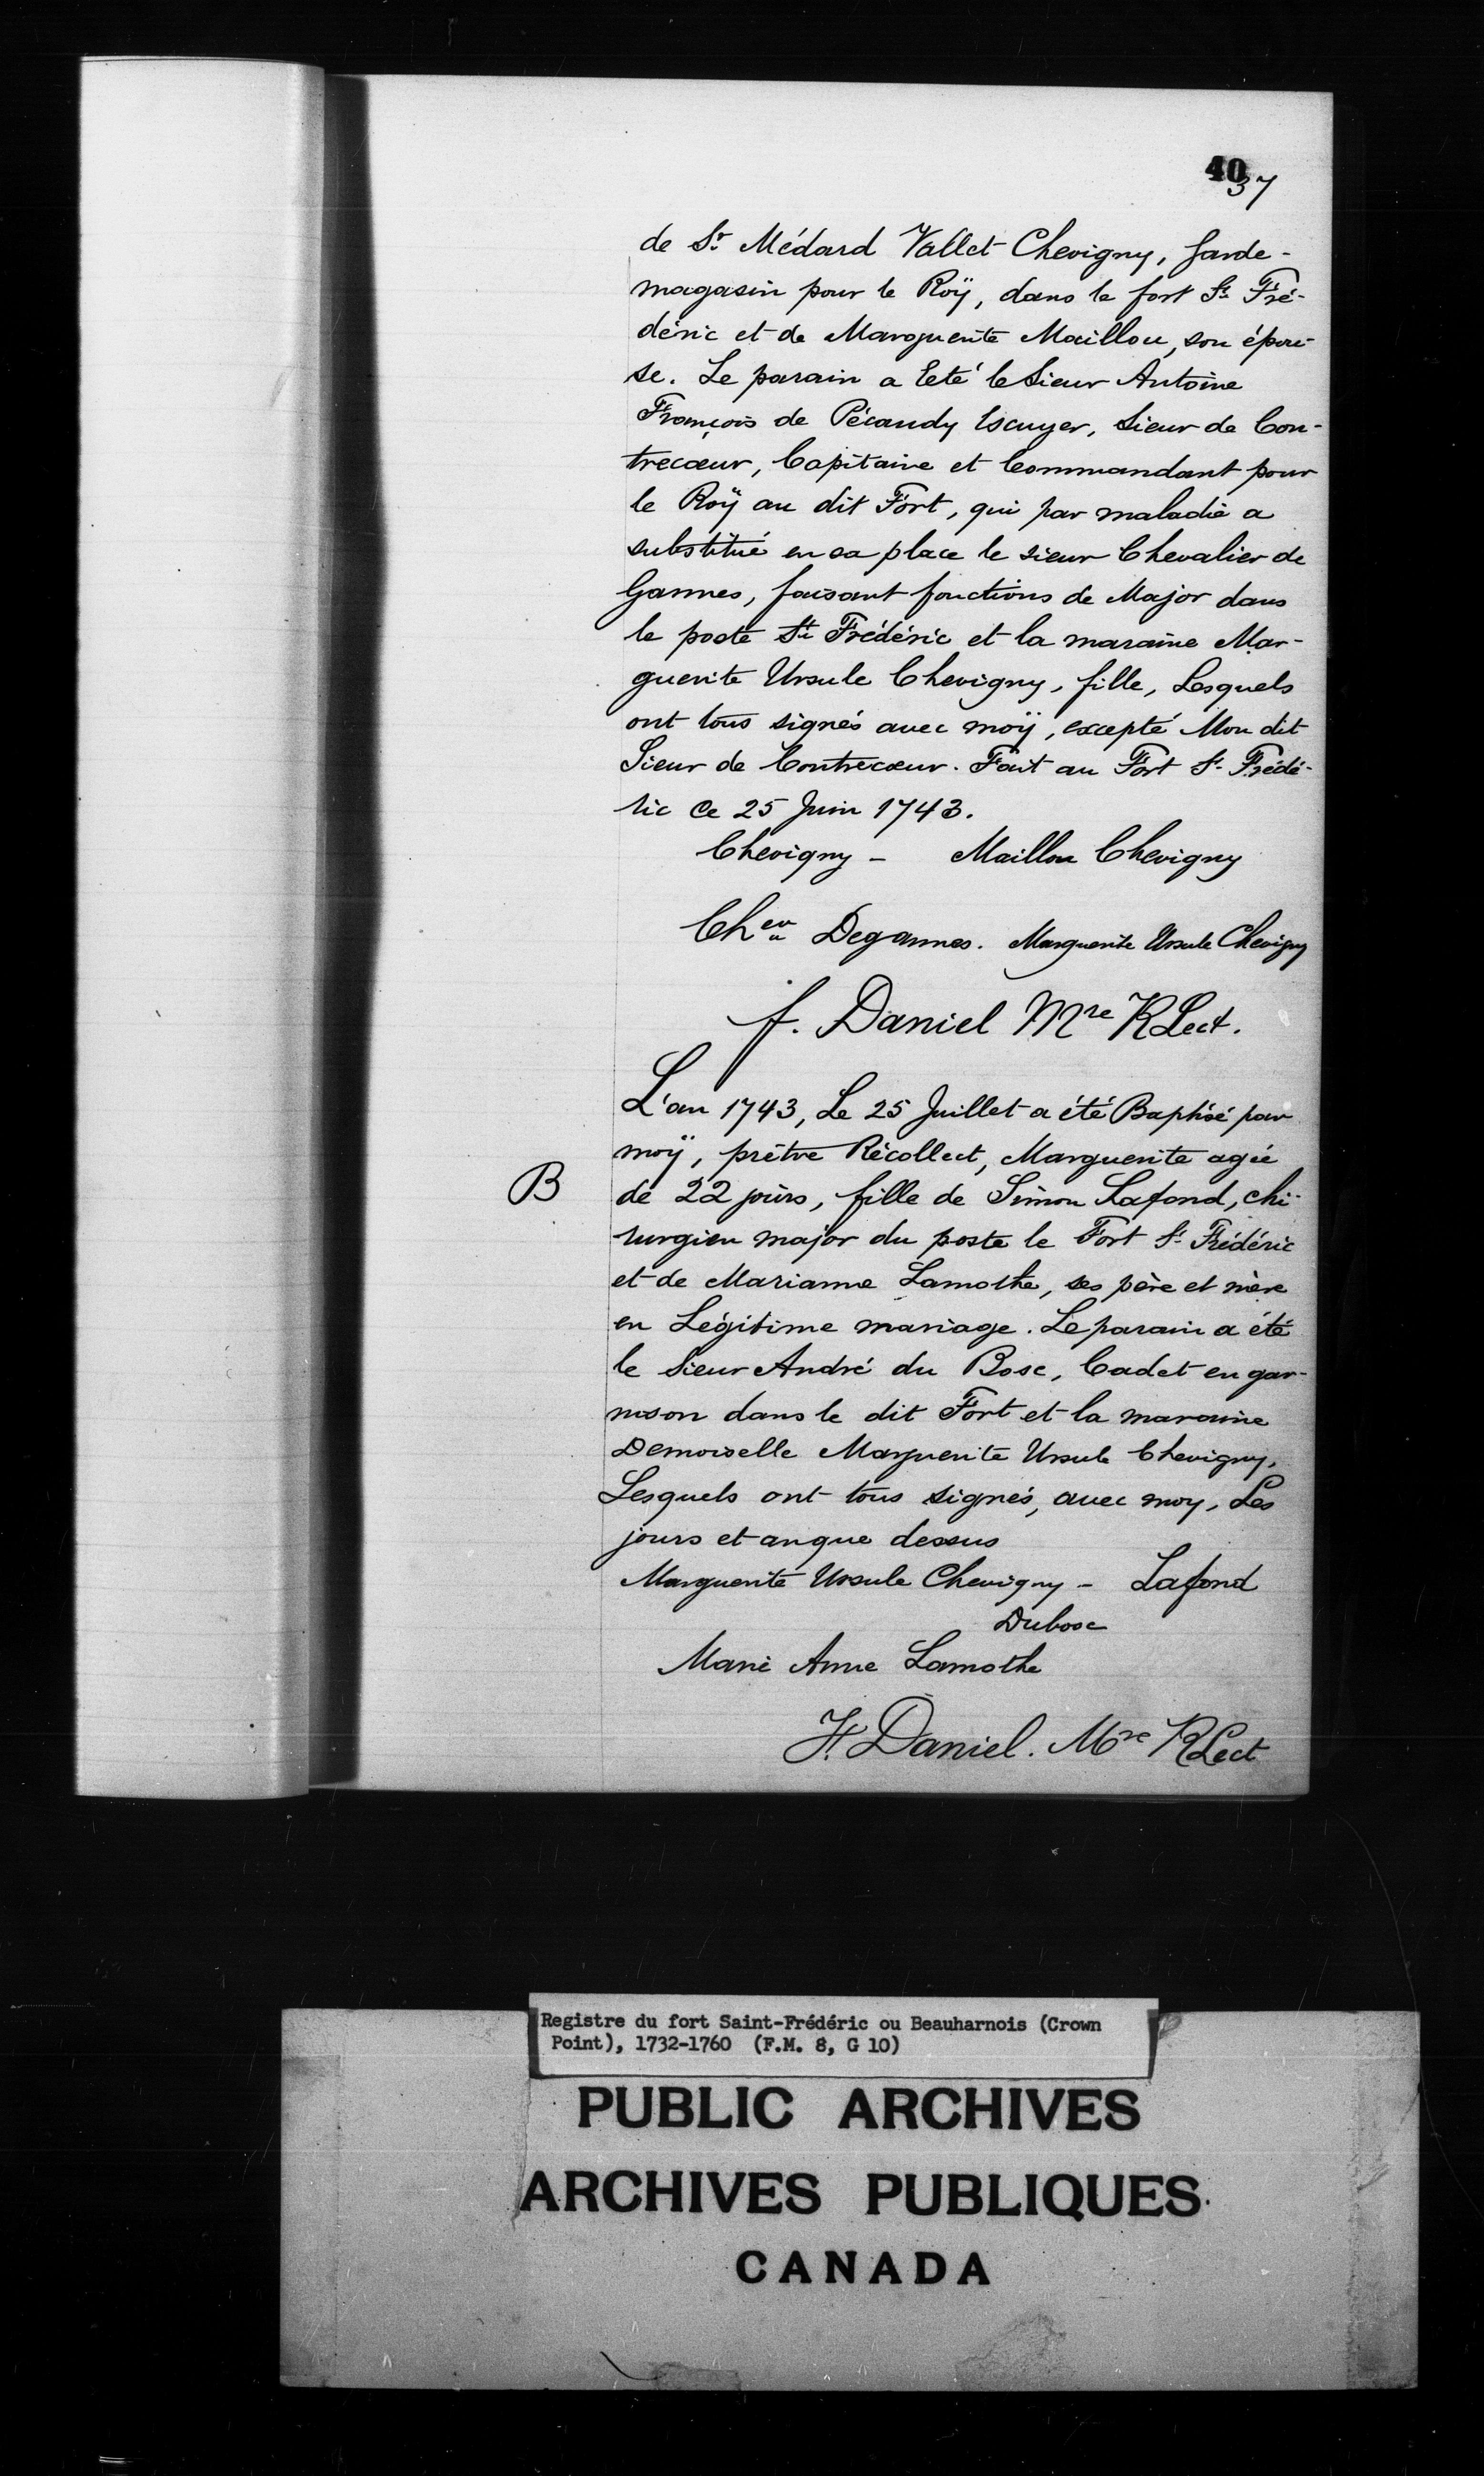 40
37
de Sr Médard Vallet Chevigny, garde-
magasin pour le Roÿ, dans le fort St Fré-
déric et de Marguerite Maillou, son épou-
se. Le parain a Eté le Sieur Antoine
François de Pécaudy Escuyer, Sieur de Con-
trecœur, Capitaine et Commandant pour
le Roÿ au dit Fort, qui par maladie a
substitué en sa place le sieur Chevalier de
Gannes, faisant fonctions de Major dans
le poste St Frédéric et la maraine Mar-
guerite Ursule Chevigny, fille, Lesquels
ont tous signés avec moÿ, excepté Mon dit
Sieur de Contrecœur. Fait au Fort St Frédé-
ric Ce 25 Juin 1743.
Chevigny - Maillou Chevigny
Cher Degannes. Marguerite Ursule Chevigny
f. Daniel Mre RLect.
L'an 1743, Le 25 Juillet a été Baptisé par
moÿ, prêtre Récollect, Marguerite agée
B de 22 jours, fille de Simon Lafond, chi-
rurgien major du poste le Fort St Frédéric
et de Marianne Lamothe, ses père et mère
en Légitime mariage. Le parain a été
le Sieur André du Bosc, Cadet en gar-
nison dans le dit Fort et la maraine
Demoiselle Marguerite Ursule Chevigny,
Lesquels ont tous signés, avec moy, Les
jours et an que dessus
Marguerite Ursule Chevigny - Lafond
Dubosc
Marie Anne Lamothe
F. Daniel. Mre RLect
Registre du fort Saint-Frédéric ou Beauharnois (Crown
Point), 1732-1760 (F.M. 8, G 10)
PUBLIC ARCHIVES
ARCHIVES PUBLIQUES
CANADA